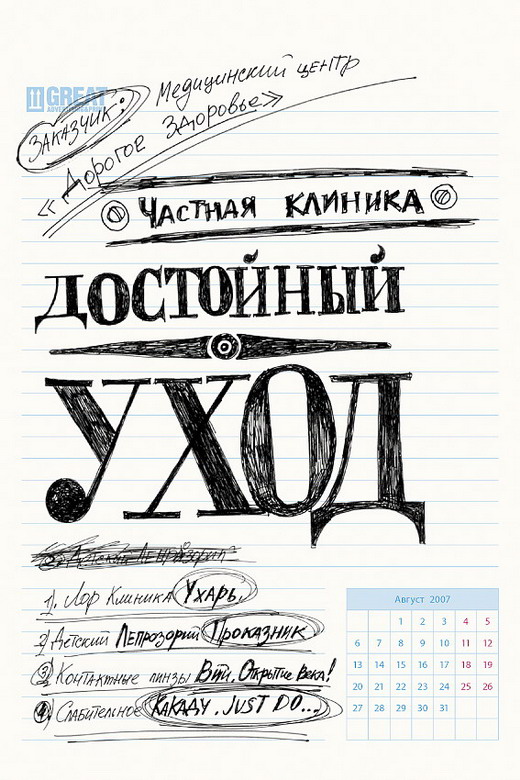 GREAT
Заказчик: Медицинский центр
«Дорогое Здоровье»
Частная клиника
ДОСТОЙНЫЙ
УХОД
Детский Лепрозорий
1). Лор Клиника Ухарь.
2) Детский Лепрозорий Проказник
3) Контактные линзы Вти. Открытие века!
4) Слабительное Какаду. JUST DO...
Август 2007
1 2 3 4 5
6 7 8 9 10 11 12
13 14 15 16 17 18 19
20 21 22 23 24 25 26
27 28 29 30 31